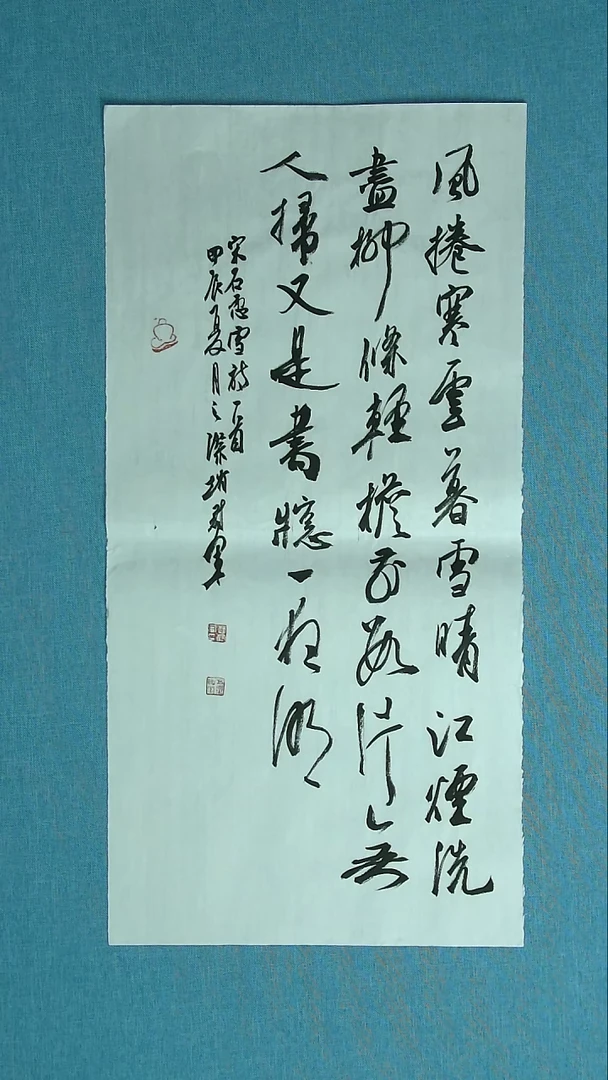 風捲寒雲暮雪晴江煙洗
盡柳條輕檐前數片無
人掃又是書牕一夜明
宋石雪詩一首
甲辰夏月之深圳